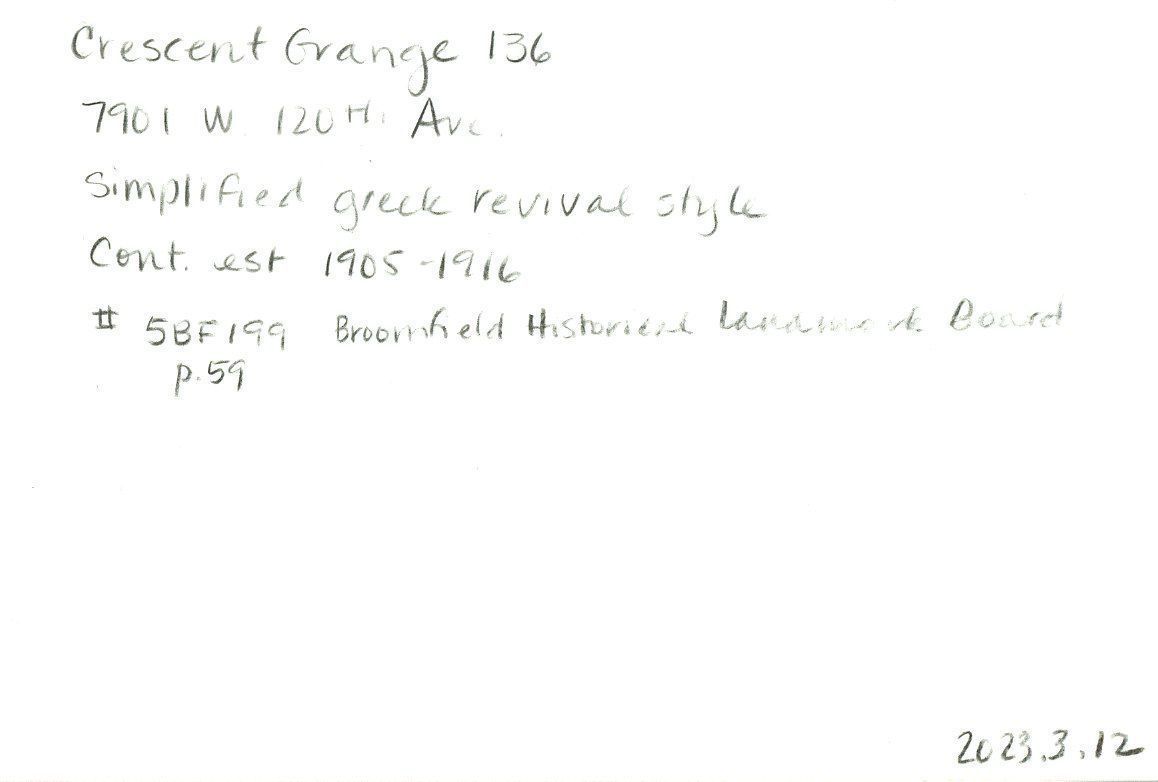 Crescent Grange 136
7901 W. 120th Ave.
Simplified greek revival style
Cont. est 1905-1916
# 5BF199 Broomfield Historical Landmark Board
p.59
2023.3.12